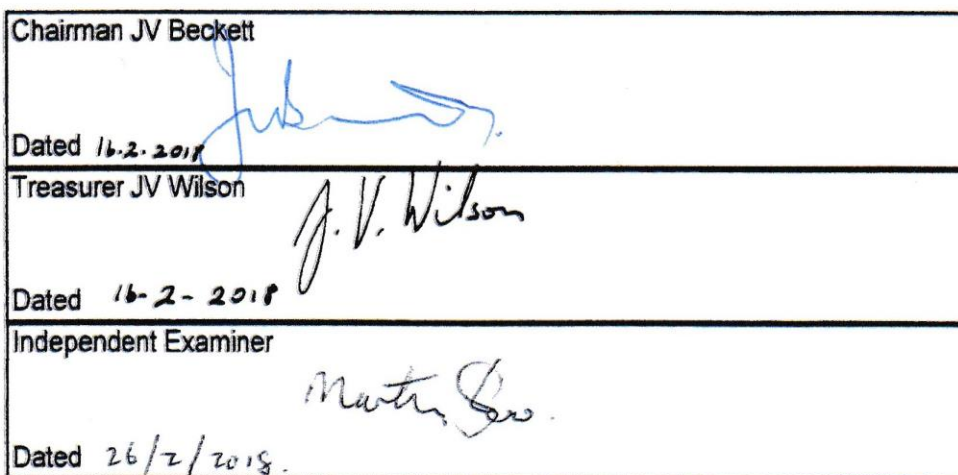 Chairman JV Beckett
Dated 16.2.2018
Treasurer JV Wilson
J. V. Wilson
Dated 16-2-2018
Independent Examiner
Martin
Dated 26/2/2018.